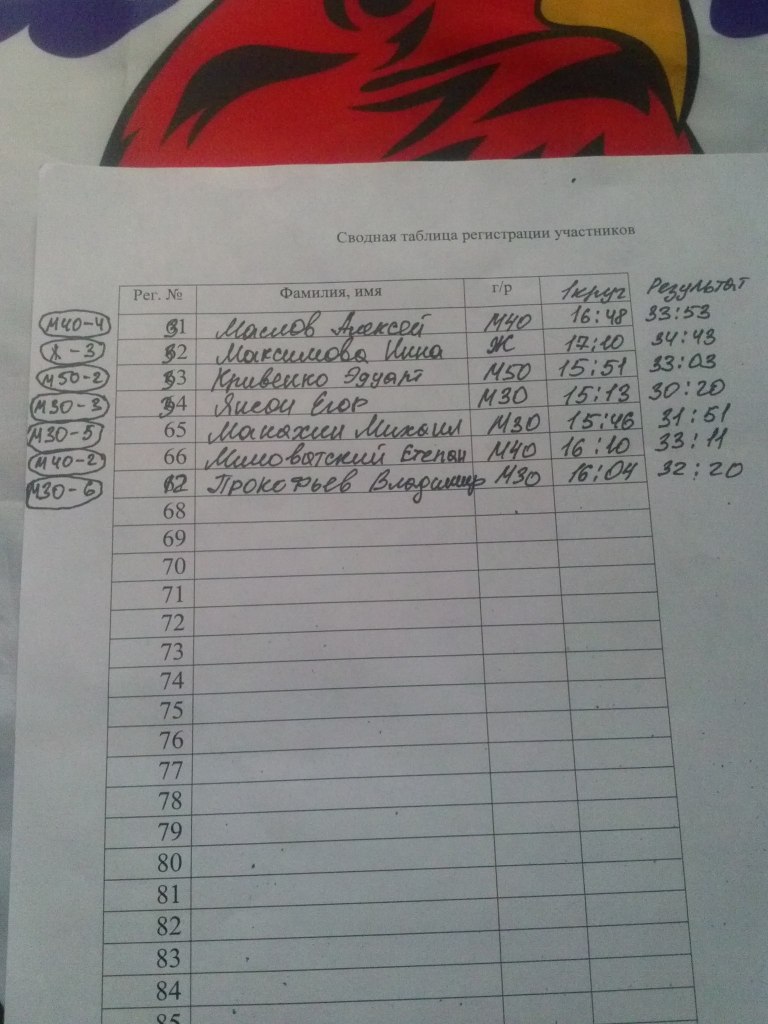 Сводная таблица регистрации участников
Рег. № Фамилия, имя г/р 1 круг Результат
М40-4 31 Маслов Алексей М40 16:48 33:53
Ж-3 32 Максимова Нина Ж 17:10 34:43
М50-2 33 Кривенко Эдуарт М50 15:51 33:03
М30-3 34 Янсон Егор М30 15:13 30:20
М30-5 65 Манахин Михаил М30 15:46 31:51
М40-2 66 Степан М40 16:10 33:11
М30-6 Прокофьев Владимир М30 16:04 32:20
68
69
70
71
72
73
74
75
76
77
78
79
80
81
82
83
84
85